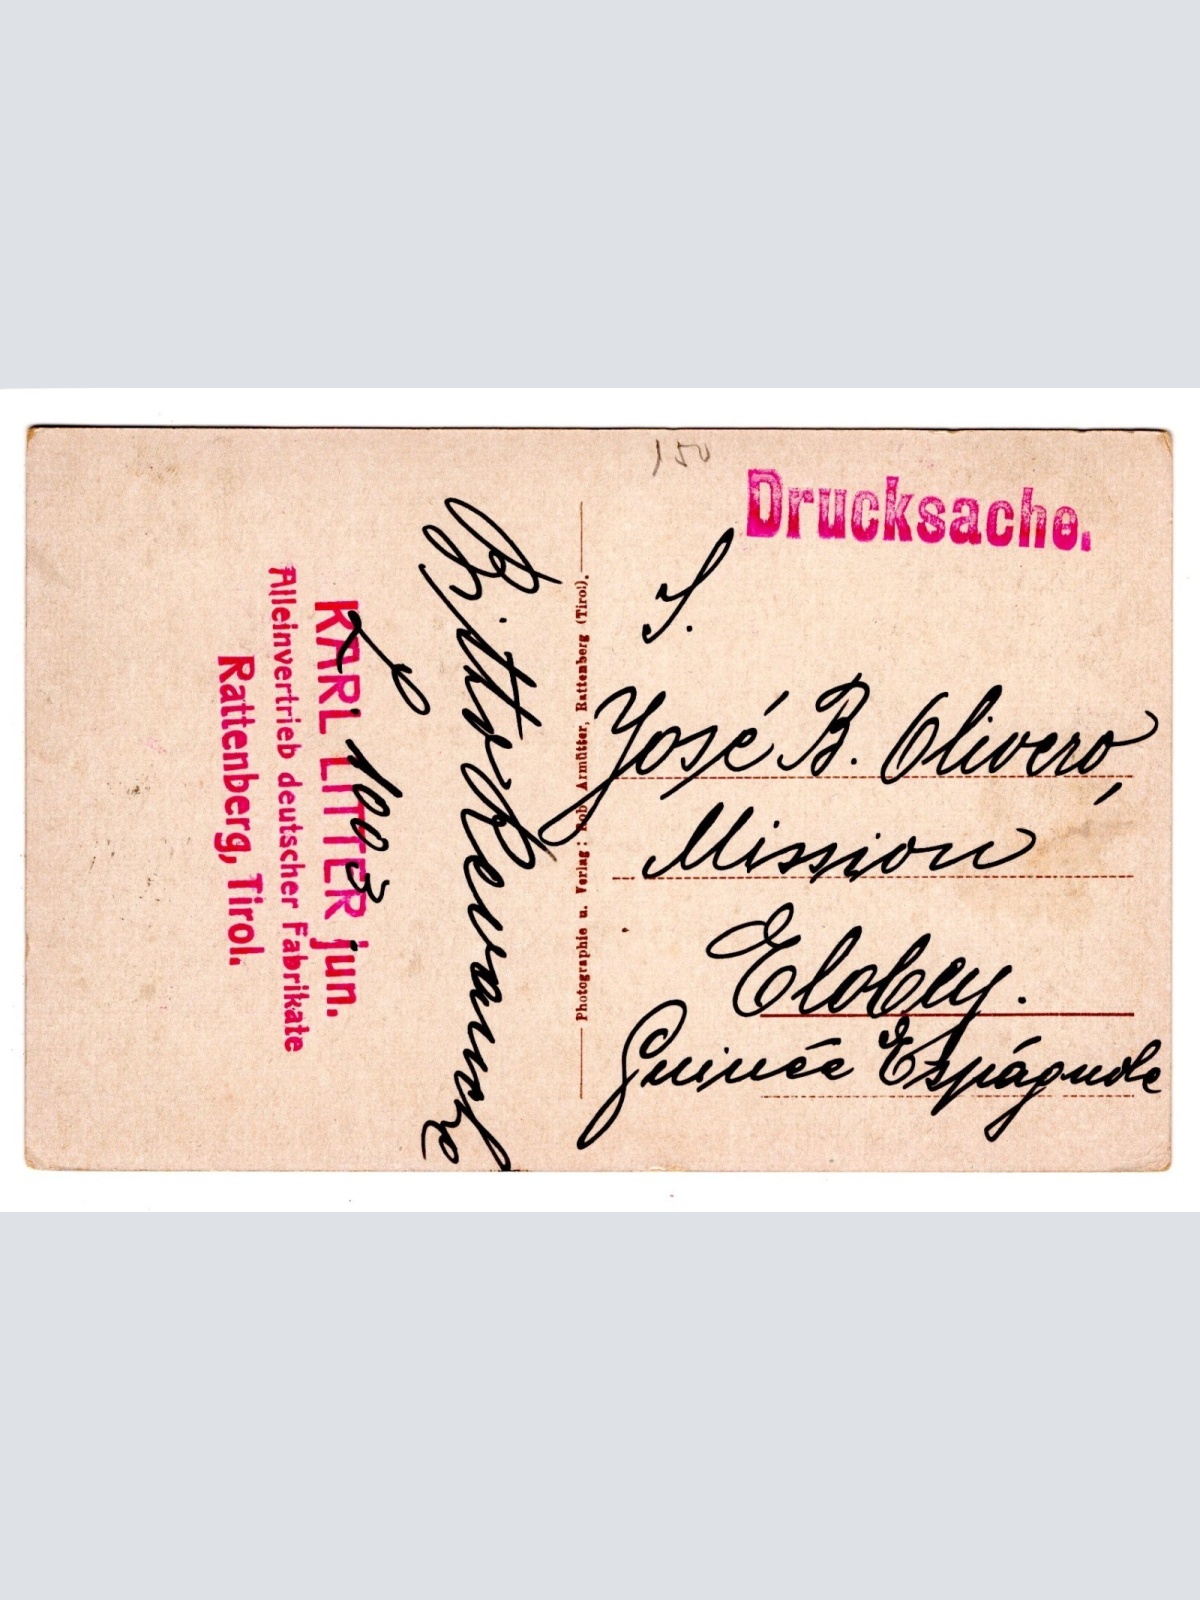 150
Drucksache.
S.
José B. Olivero,
Mission
Elobey.
Guinée Espágnole
Photographie u. Verlag: Rob Armütter, Rattenberg (Tirol).
Bitte Revanche
L 1003
KARL LITTER jun.
Alleinvertrieb deutscher Fabrikate
Rattenberg, Tirol.